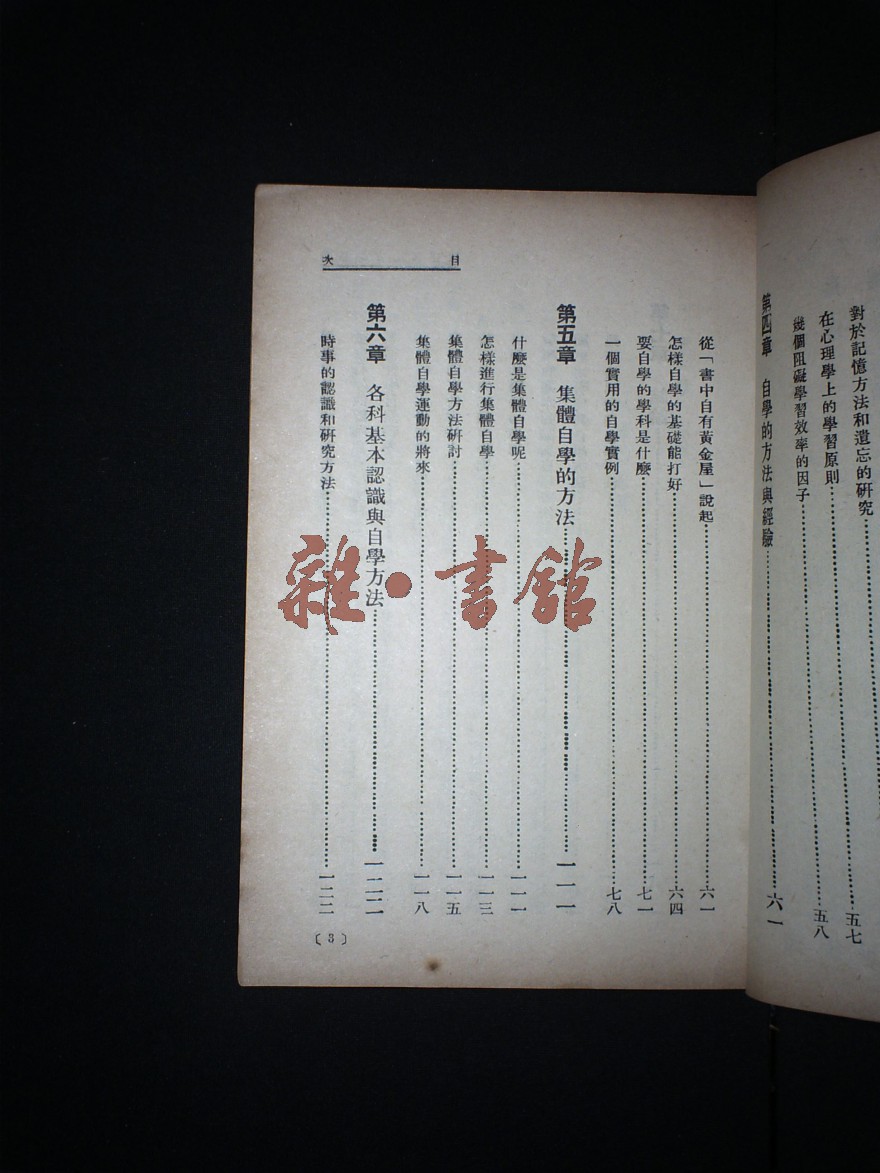 對於記憶方法和遺忘的研究……五七
在心理學上的學習原則……五八
幾個阻礙學習效率的因子……
第四章 自學的方法與經驗……六一
目次
從「書中自有黃金屋」說起……六一
怎樣自學的基礎能打好……六四
要自學的學科是什麼……七一
一個實用的自學實例……七八
第五章 集體自學的方法……一一一
什麼是集體自學呢……一一一
怎樣進行集體自學……一一三
集體自學方法研討……一一五
集體自學運動的將來……一一八
第六章 各科基本認識與自學方法……一二二
時事的認識和研究方法……一二二
〔3〕
雜·書館